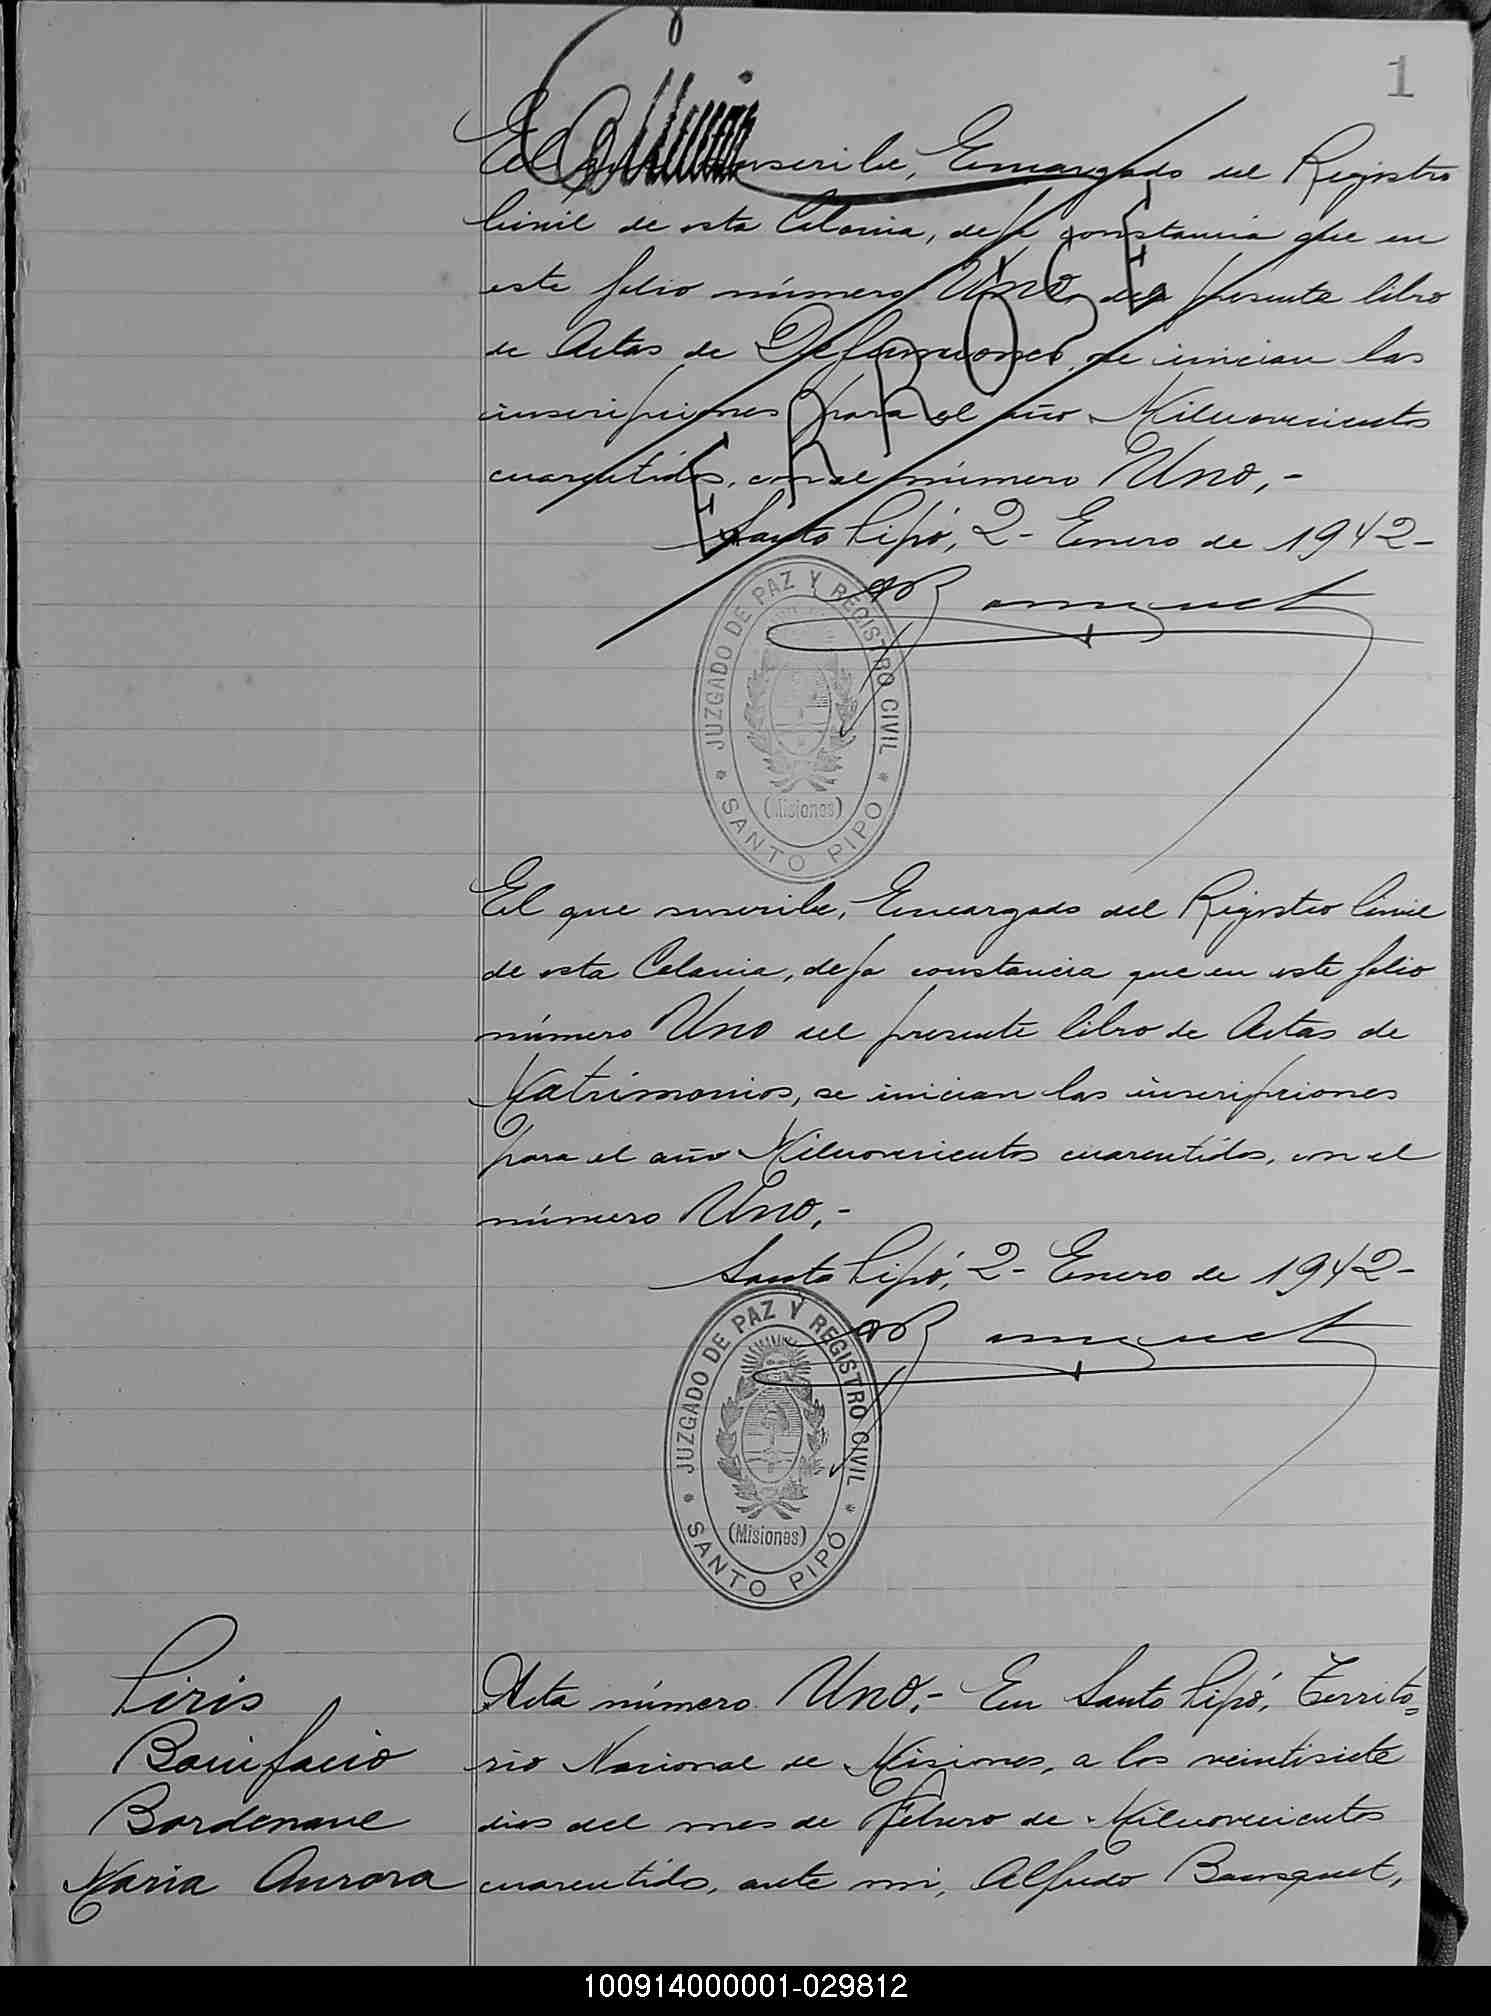 1
El que suscribe, Encargado del Registro
Civil de esta Colonia, deja constancia que en
este folio número Uno, del presente libro
de Actas de Defunciones, se inician las
inscripciones para el año Milnovecientos
cuarentidos, con el número Uno,-
ERROSE
Santo Pipó, 2- Enero de 1942-
JUZGADO DE PAZ Y REGISTRO CIVIL
(Misiones)
* SANTO PIPO *
El que suscribe, Encargado del Registro Civil
de esta Colonia, deja constancia que en este folio
número Uno del presente libro de Actas de
Matrimonios, se inician las inscripciones
para el año Milnovecientos cuarentidos, con el
número Uno,-
Santo Pipó, 2- Enero de 1942-
JUZGADO DE PAZ Y REGISTRO CIVIL
(Misiones)
* SANTO PIPÓ *
Piris
Bonifacio
Bordenave
Maria Aurora
Acta número Uno,- En Santo Pipó, Territo=
rio Nacional de Misiones, a los veintisiete
dias del mes de Febrero de Milnovecientos
cuarentidos, ante mi, Alfredo Bousquet,
100914000001-029812